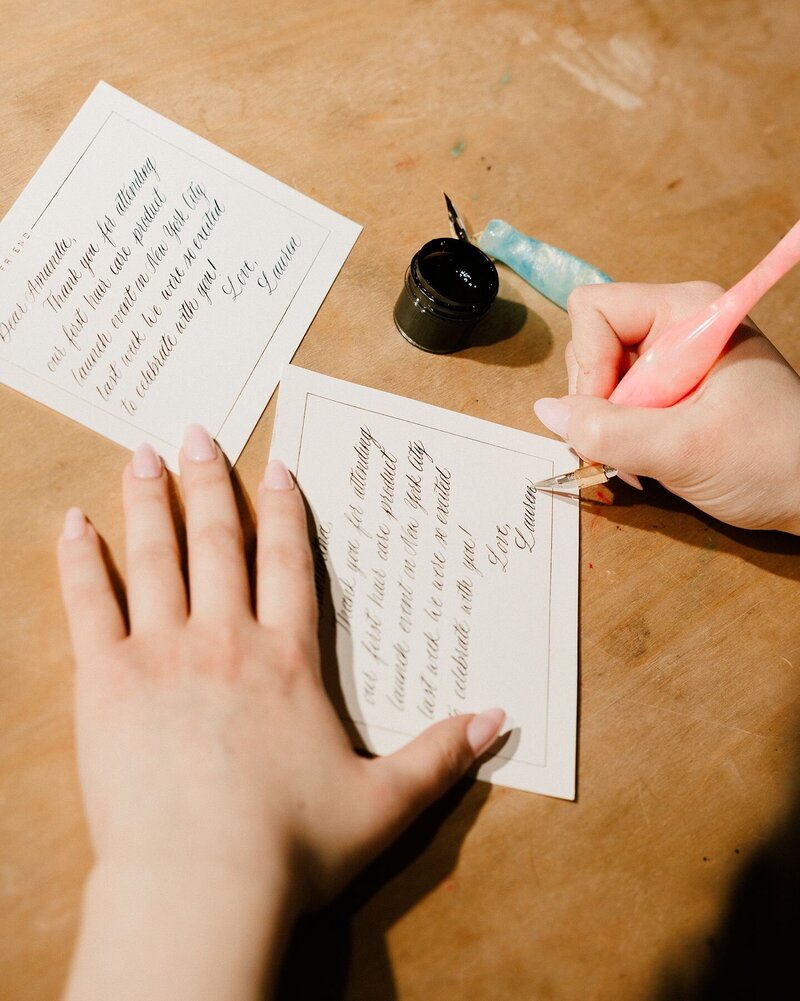 FRIEND
Dear Amanda,
Thank you for attending
our first hair care product
launch event in New York City
last week we were so excited
to celebrate with you!
Love,
Lauren
Thank you for attending
our first hair care product
launch event in New York City
last week we were so excited
to celebrate with you!
Love,
Lauren